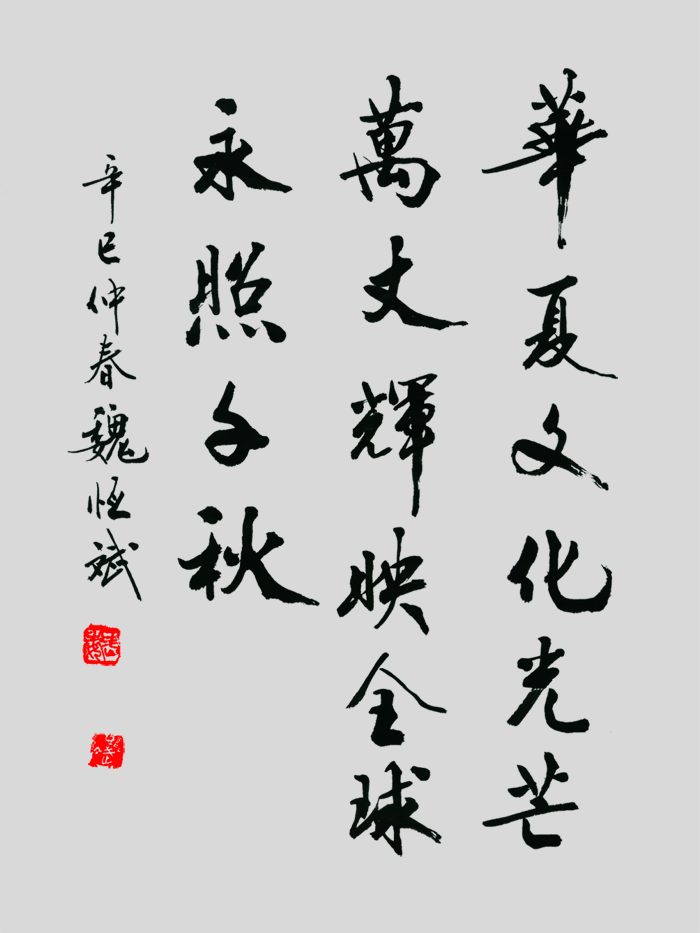 華夏文化光芒
萬丈輝映全球
永照千秋
辛巳仲春魏恒斌